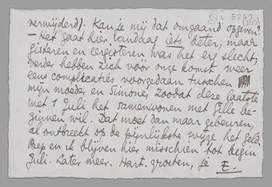 verwijderd). Kan je mij dat omgaand opgeven?
— Het gaat hier vandaag iets beter, maar
gisteren en eergisteren was het erg slecht,
verder hebben zich vóór onze komst weer
een complicaties voorgedaan tusschen
mijn moeder en Simone, zoodat deze laatste
met 1 Juli het samenwonen met Jelle be-
ginnen wil. Dat moet dan maar gebeuren,
al ontbreekt op de pijnlijkste wijze het geld.
Bep en ik blijven hier misschien tot begin
Juli. Later meer. Hart. groeten, je E.